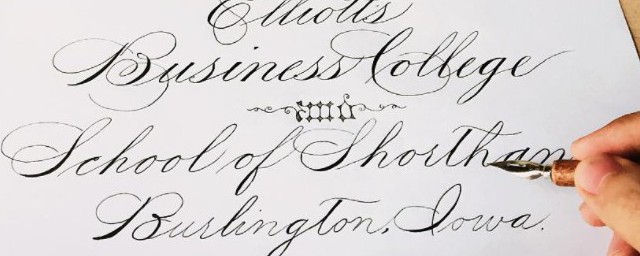 Elliotts
Business College
and
School of Shorthan
Burlington, Iowa.